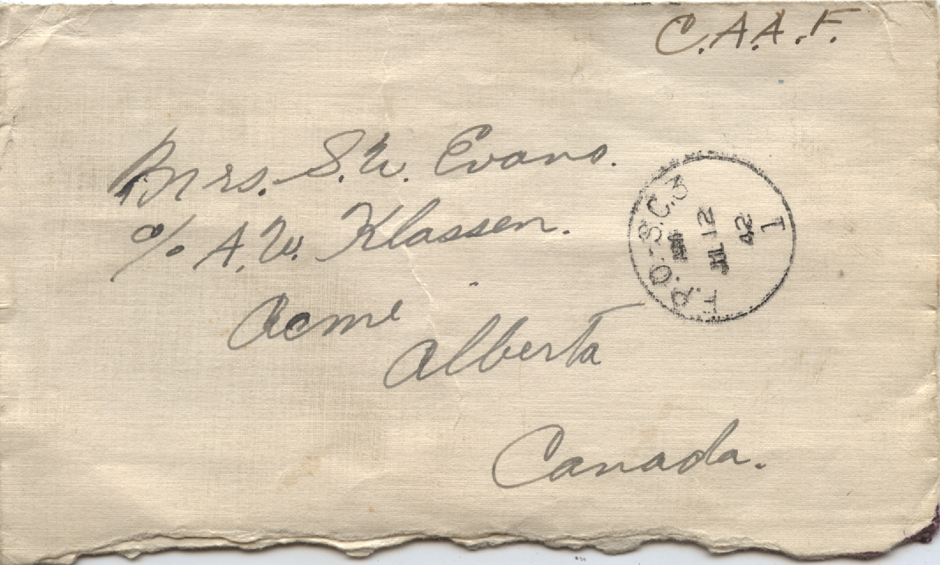 C.A.A.F.
Mrs. S.W. Evans.
c/o A.W. Klassen.
Acme
Alberta
Canada.
F.P.O-S.C.3
AM
JUL 12
42
1